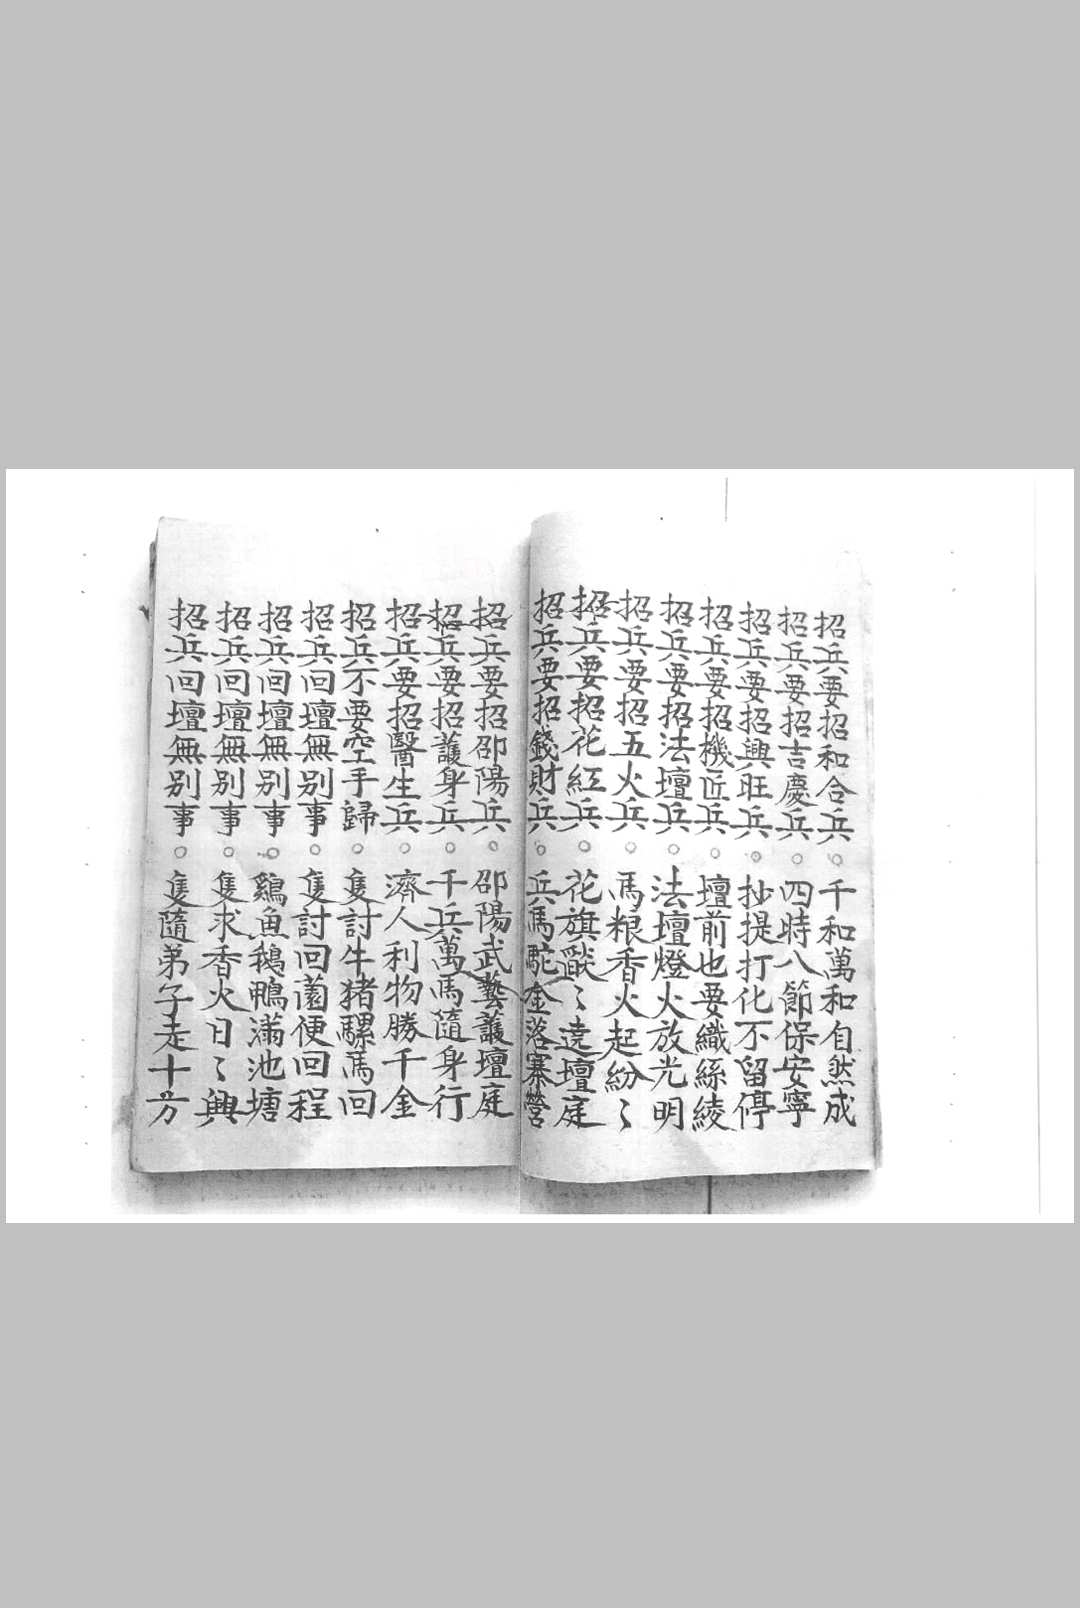 招兵要招和合兵○千和萬和自然成
招兵要招吉慶兵○四時八節保安寧
招兵要招興旺兵○抄提打化不留停
招兵要招機匠兵○壇前也要織絲綾
招兵要招法壇兵○法壇燈火放光明
招兵要招五火兵○馬粮香火起紛〻
招兵要招花紅兵○花旗〻遶壇庭
招兵要招錢財兵○兵馬駝金落寨營
招兵要招邵陽兵○邵陽武藝護壇庭
招兵要招護身兵○千兵萬馬隨身行
招兵要招醫生兵○濟人利物勝千金
招兵不要空手歸○隻討牛猪騾馬回
招兵回壇無别事○隻討回便回程
招兵回壇無别事○鷄魚鵝鴨滿池塘
招兵回壇無别事○隻求香火日〻興
招兵回壇無别事○隻隨弟子走十方